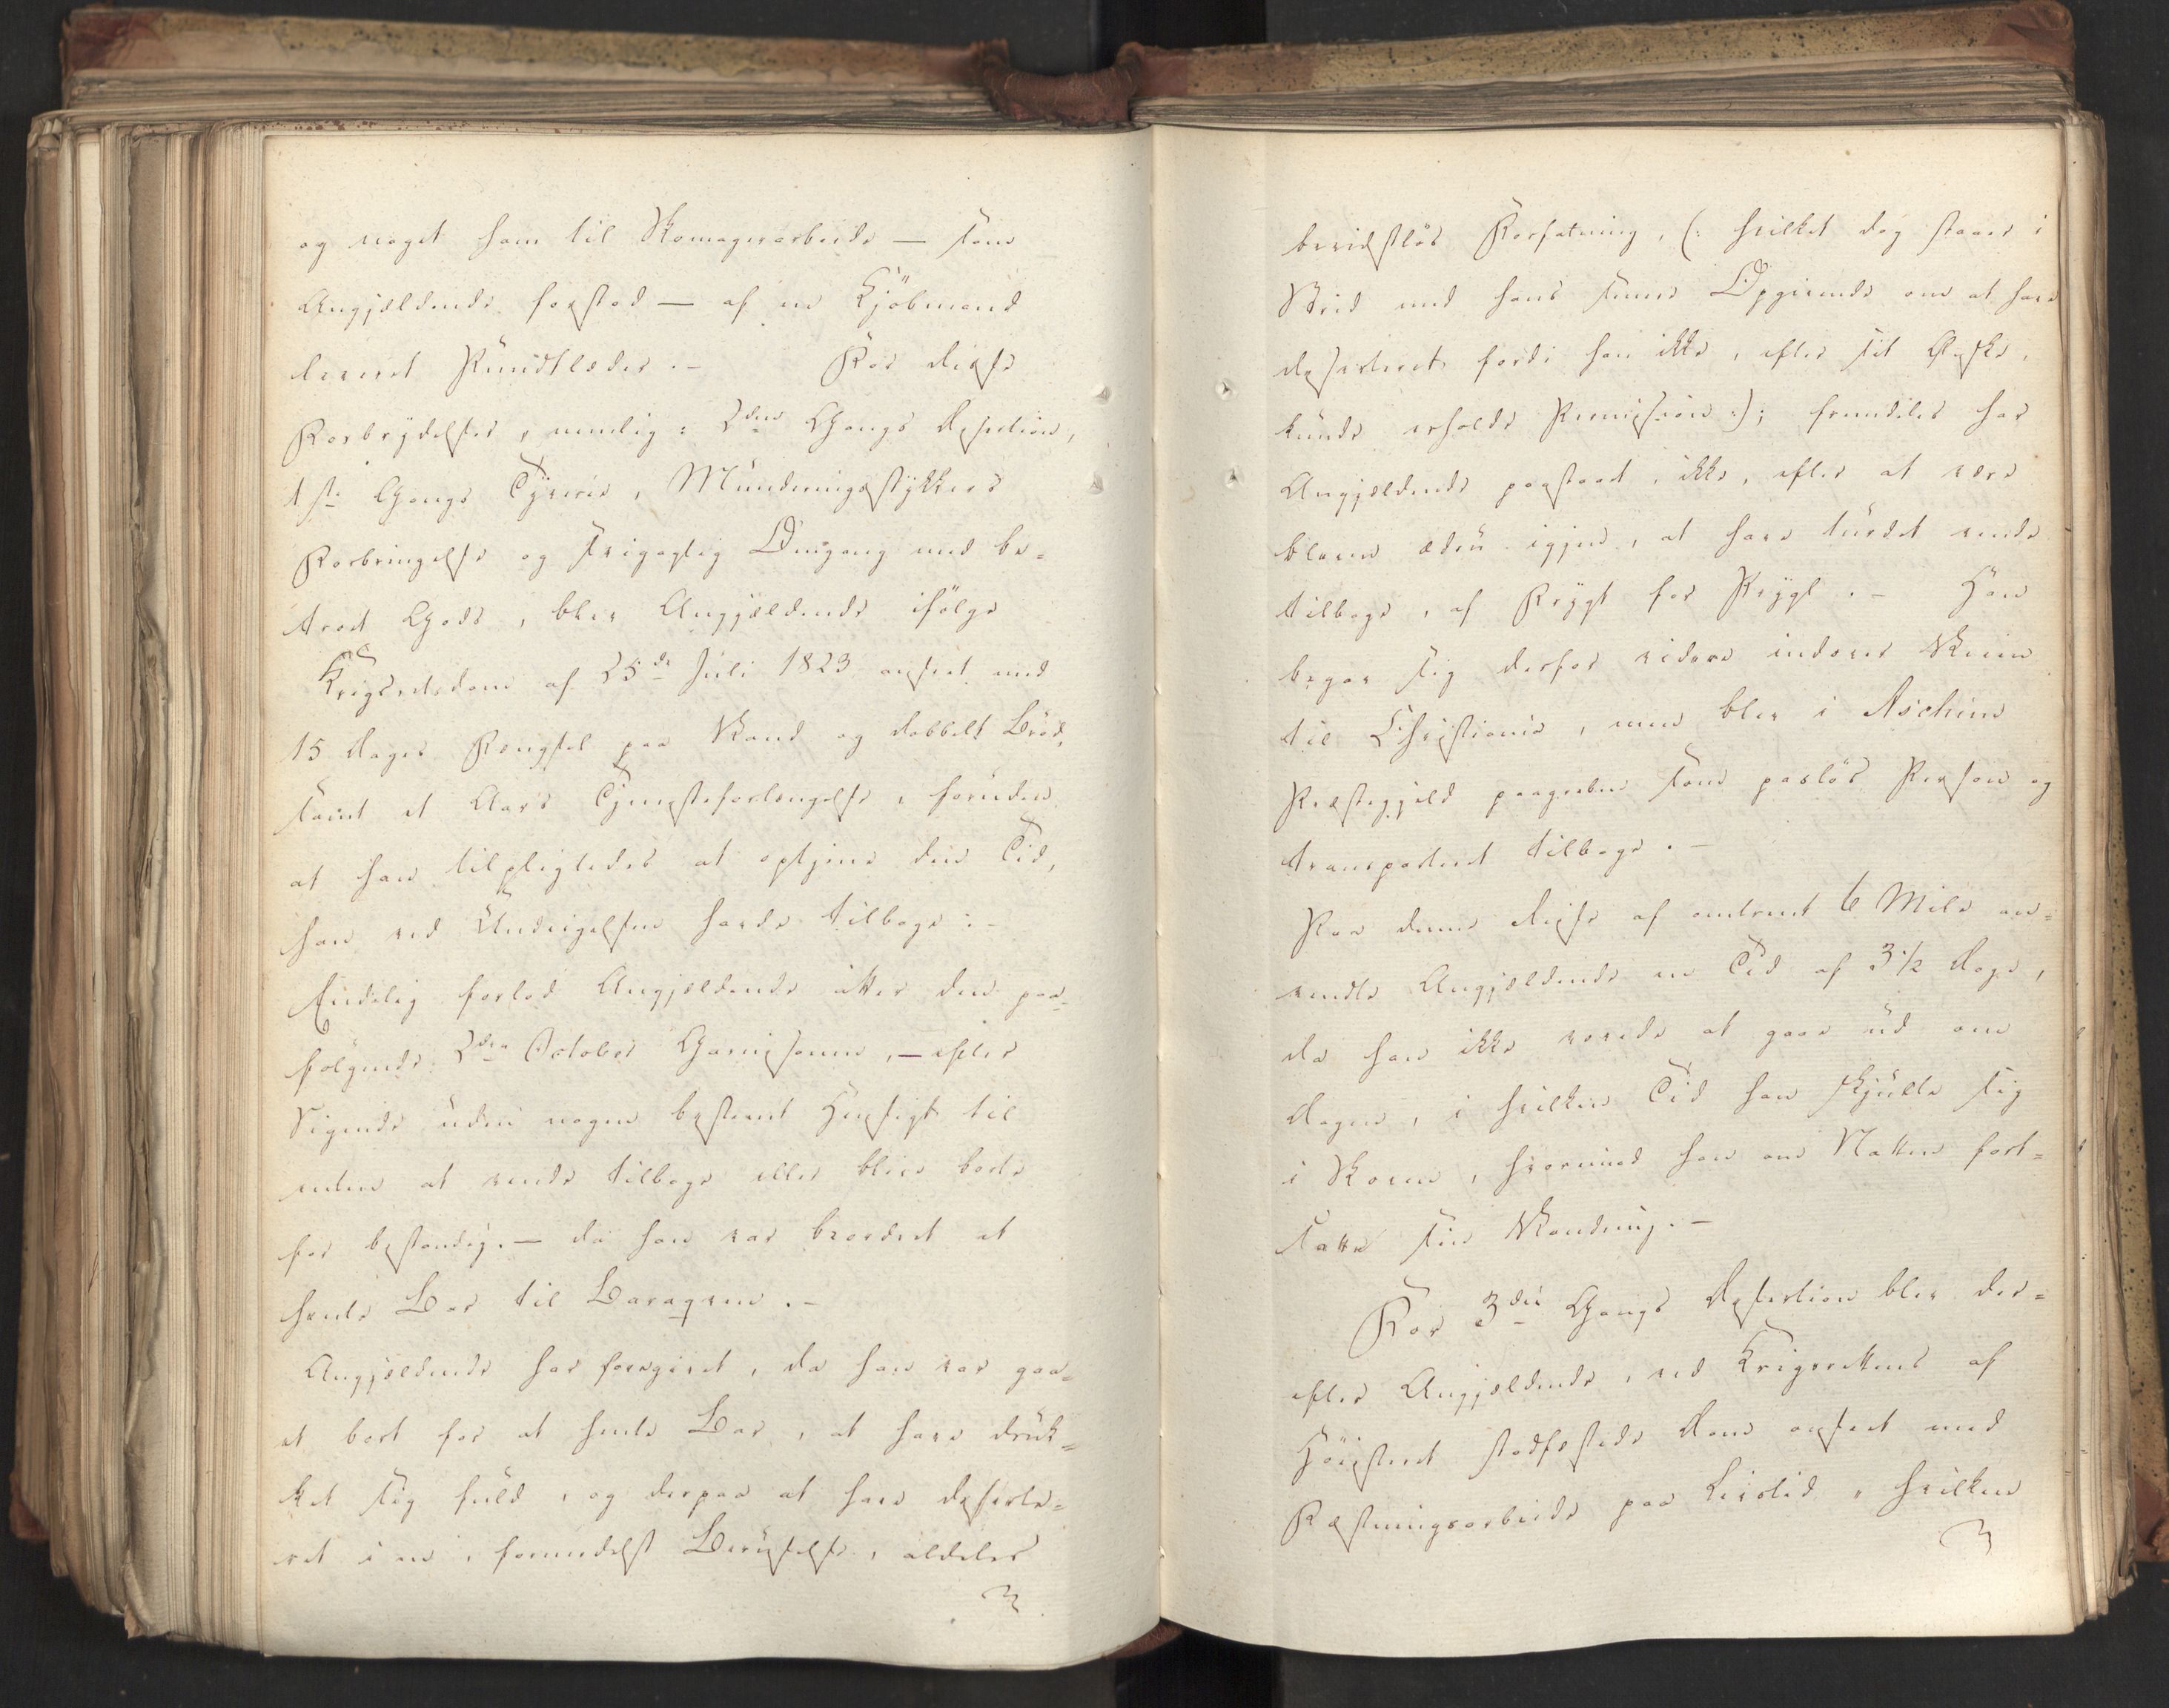 og noget ham til Skomagerarbeide — som
Angjældende forstod — af en Kjöbmand
leveret Rundtlæder. — For disse
Forbrydelser, nemlig: 2den Gangs Desertion,
1ste Gangs Tyverie, Munderingsstykkers
Forbringelse og svigagtig Omgang med be-
troet Gods, blev Angjældende ifölge
Krigsretsdom af 25de Juli 1823 anseet med
15 Dages Fængsel paa Vand og dobbelt Bröd,
samt et Aars Tjenesteforlængelse, foruden
at han tilpligtedes at optjene den Tid,
han ved Undvigelsen havde tilbage: —
Endelig forlod Angjældende atter den paa-
fölgende 2den October Garnisonen, — efter
Sigende uden nogen bestemt Hensigt til
enten at vende tilbage eller blive borte
for bestandig. — da han var beordret at
hente Bar til Baraqven. —
Angjældende har foregivet, da han var gaa-
et bort for at hente Bar, at have druk-
ket sig fuld, og derpaa at have deserte-
ret i en, formedelst Beruselse, aldeles
bevidstlös Forfatning, (: hvilket dog staaer i
Strid med hans senere Opgivende om at have
deserteret fordi han ikke, efter sit Ønske,
kunde erholde Permission :); fremdeles har
Angjældende paastaaet, ikke, efter at være
bleven ædru igjen, at have turdet vende
tilbage, af Frygt for Prygl. — Han
begav sig derfor videre indover Veien
til Christiania, men blev i Aschim
Præstegjeld paagreben som paslös Person og
transporteret tilbage. —
Paa denne Reise af omtrent 6 Mile an-
vendte Angjældende en Tid af 3 1/2 Dage,
da han ikke vovede at gaae ud om
Dagen, i hvilken Tid han skjulte sig
i Skoven, hvorimod han om Natten fort-
satte sin Vandring. —
For 3die Gangs Desertion blev der-
efter Angjældende, ved Krigsrettens af
Höiesteret stadfæstede Dom anseet med
Fæstningsarbeide paa Livstid, hvilken